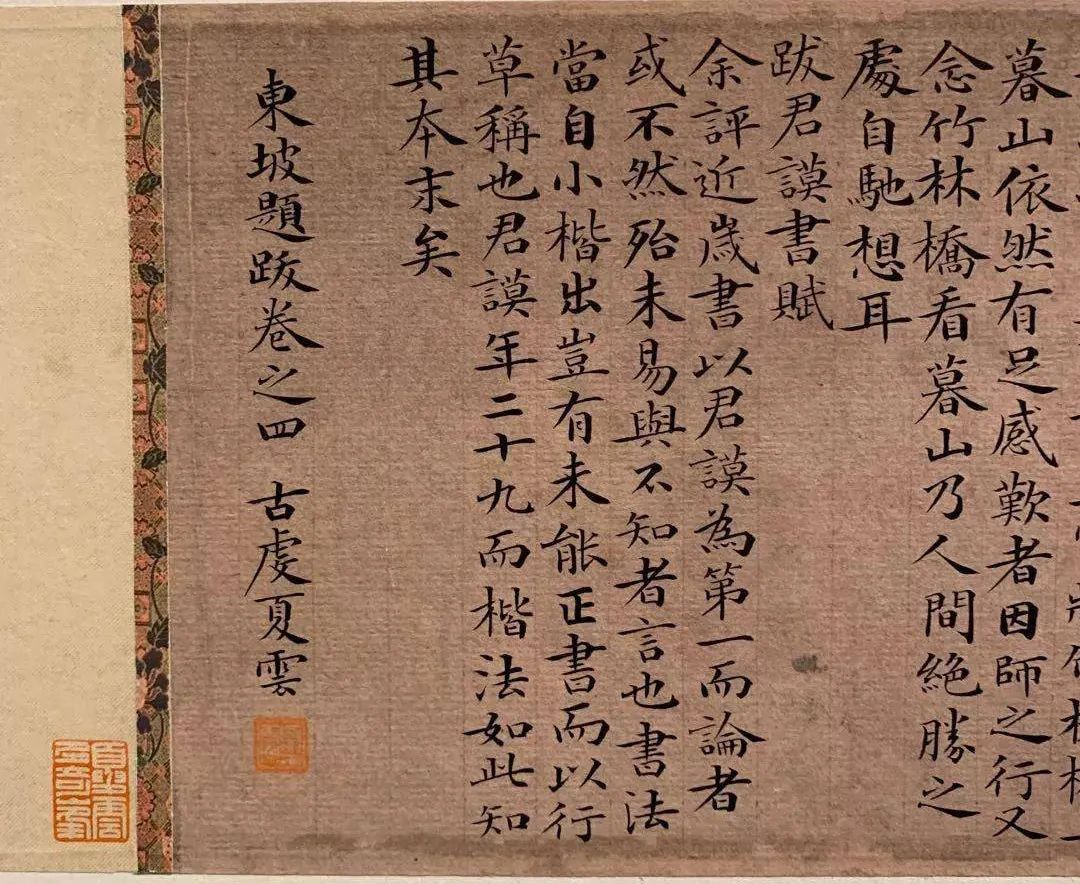 暮山依然有足感歎者因師之行又
念竹林橋看暮山乃人間絶勝之
處自馳想耳
跋君謨書賦
余評近歲書以君謨為第一而論者
或不然殆未易與不知者言也書法
當自小楷出豈有未能正書而以行
草稱也君謨年二十九而楷法如此知
其本末矣
東坡題跋卷之四 古虔夏雲